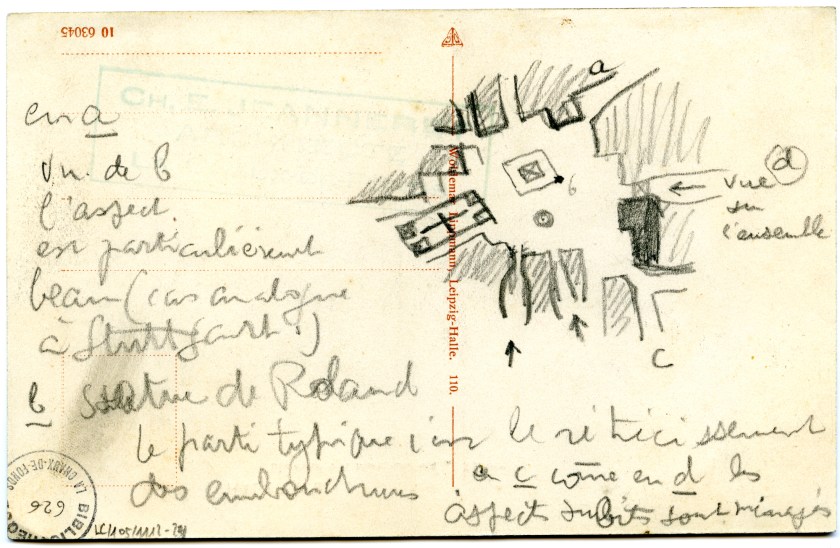 10 63045
CH. E. JEANNERET
en a
vu de b
l'aspect
est particulièrement
beau (cas analogue
à Stuttgart!)
b statue de Roland
le parti typique c'est le rétrécissement
des embouchures
en c comme en d les
aspects subits sont ménagés
a
b
c
d
vue
sur
l'ensemble
Woldemar Leipzig-Halle. 110.
LA CHAUX-DE-FONDS
BIBLIOTHÈQUE
626
LC/105/1112-291